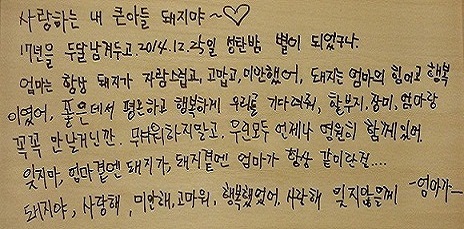 사랑하는 내 큰아들 돼지야 ~♡
17년을 두달 남겨두고. 2014.12.25일 성탄밤 별이 되었구나.
엄마는 항상 돼지가 자랑스럽고, 고맙고, 미안했어, 돼지는 엄마의 힘이고 행복
이였어, 좋은데서 평온하고 행복하게 우리를 기다려줘, 할부지, 장미, 엄마랑
꼭꼭 만날거니깐. 무서워하지말고, 우린모두 언제나 영원히 함께있어.
잊지마, 엄마곁엔 돼지가, 돼지곁엔 엄마가 항상 같이란걸....
돼지야, 사랑해, 미안해, 고마워, 행복했었어. 사랑해 잊지않을께 -엄마가-